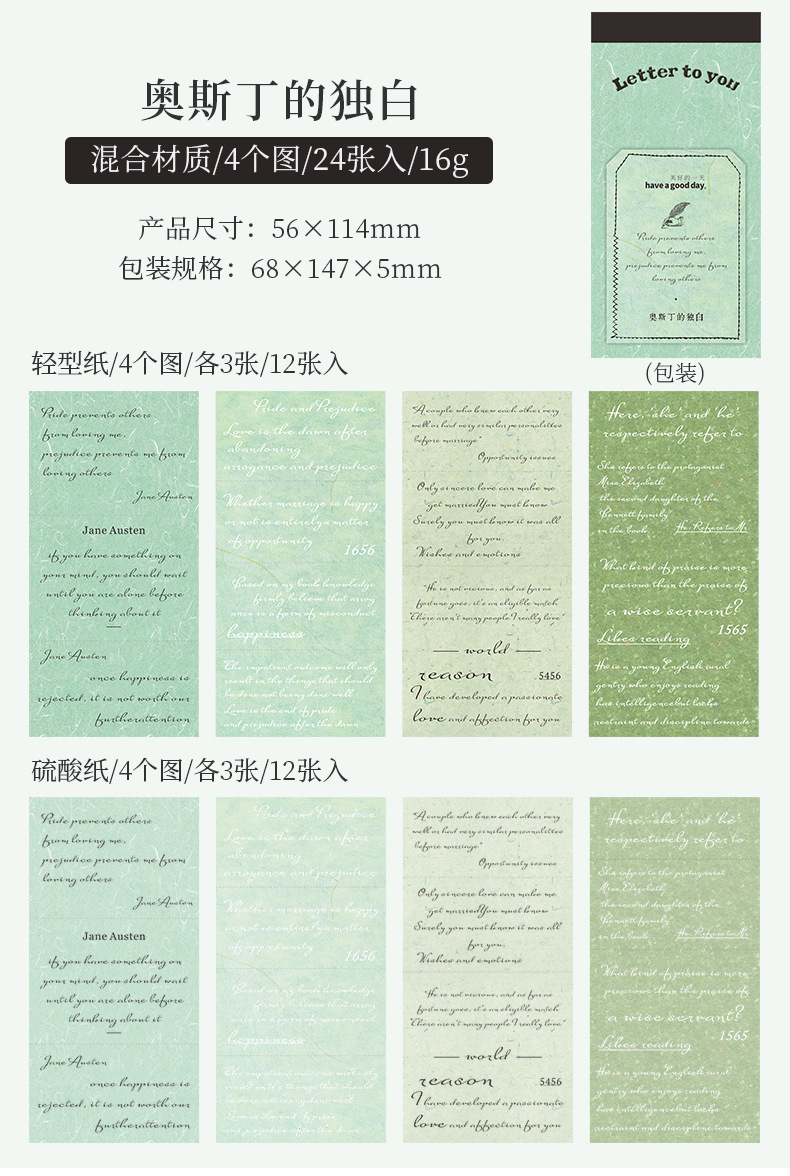 奥斯丁的独白
混合材质/4个图/24张入/16g
产品尺寸：56×114mm
包装规格：68×147×5mm
Letter to you
美好的一天
have a good day.
Pride prevents others
from loving me,
prejudice prevents me from
loving others
奥斯丁的独白
(包装)
轻型纸/4个图/各3张/12张入
Pride prevents others
from loving me,
prejudice prevents me from
loving others
Jane Austen
Jane Austen
if you have something on
your mind, you should wait
until you are alone before
thinking about it
Jane Austen
once happiness is
rejected, it is not worth our
furtherattention
Pride and Prejudice
Love is the dawn after
abandoning
arrogance and prejudice
Whether marriage is happy
or not is entirely a matter
of opportunity
1656
Based on my book knowledge
firmly believe that arrog
ance is a form of misconduct
happiness
The impatient outcome will only
result in the things that should
be done not being done well
Love is the end of pride
and prejudice after the dawn
"A couple who knew each other very
well or had very similar personalities
before marriage"
Opportunity issues
Only sincere love can make me
get married You must know
Surely you must know it was all
for you.
Wishes and emotions
"He is not vicious, and as far as
fortune goes, it's an eligible match
"There aren't many people I really love"
world
reason 5456
I have developed a passionate
love and affection for you
Here, 'she' and 'he'
respectively refer to
She refers to the protagonist
Miss Elizabeth
the second daughter of the
Bennett family
in the book. He: Refers to Mr.
What kind of praise is more
precious than the praise of
a wise servant?
1565
Likes reading
He is a young English rural
gentry who enjoys reading
has intelligence but lacks
restraint and discipline towards
硫酸纸/4个图/各3张/12张入
Pride prevents others
from loving me,
prejudice prevents me from
loving others
Jane Austen
Jane Austen
if you have something on
your mind, you should wait
until you are alone before
thinking about it
Jane Austen
once happiness is
rejected, it is not worth our
furtherattention
Pride and Prejudice
Love is the dawn after
abandoning
arrogance and prejudice
Whether marriage is happy
or not is entirely a matter
of opportunity
1656
Based on my book knowledge
firmly believe that arrog
ance is a form of misconduct
happiness
The impatient outcome will only
result in the things that should
be done not being done well
Love is the end of pride
and prejudice after the dawn
"A couple who knew each other very
well or had very similar personalities
before marriage"
Opportunity issues
Only sincere love can make me
get married You must know
Surely you must know it was all
for you.
Wishes and emotions
"He is not vicious, and as far as
fortune goes, it's an eligible match
"There aren't many people I really love"
world
reason 5456
I have developed a passionate
love and affection for you
Here, 'she' and 'he'
respectively refer to
She refers to the protagonist
Miss Elizabeth
the second daughter of the
Bennett family
in the book. He: Refers to Mr.
What kind of praise is more
precious than the praise of
a wise servant?
1565
Likes reading
He is a young English rural
gentry who enjoys reading
has intelligence but lacks
restraint and discipline towards